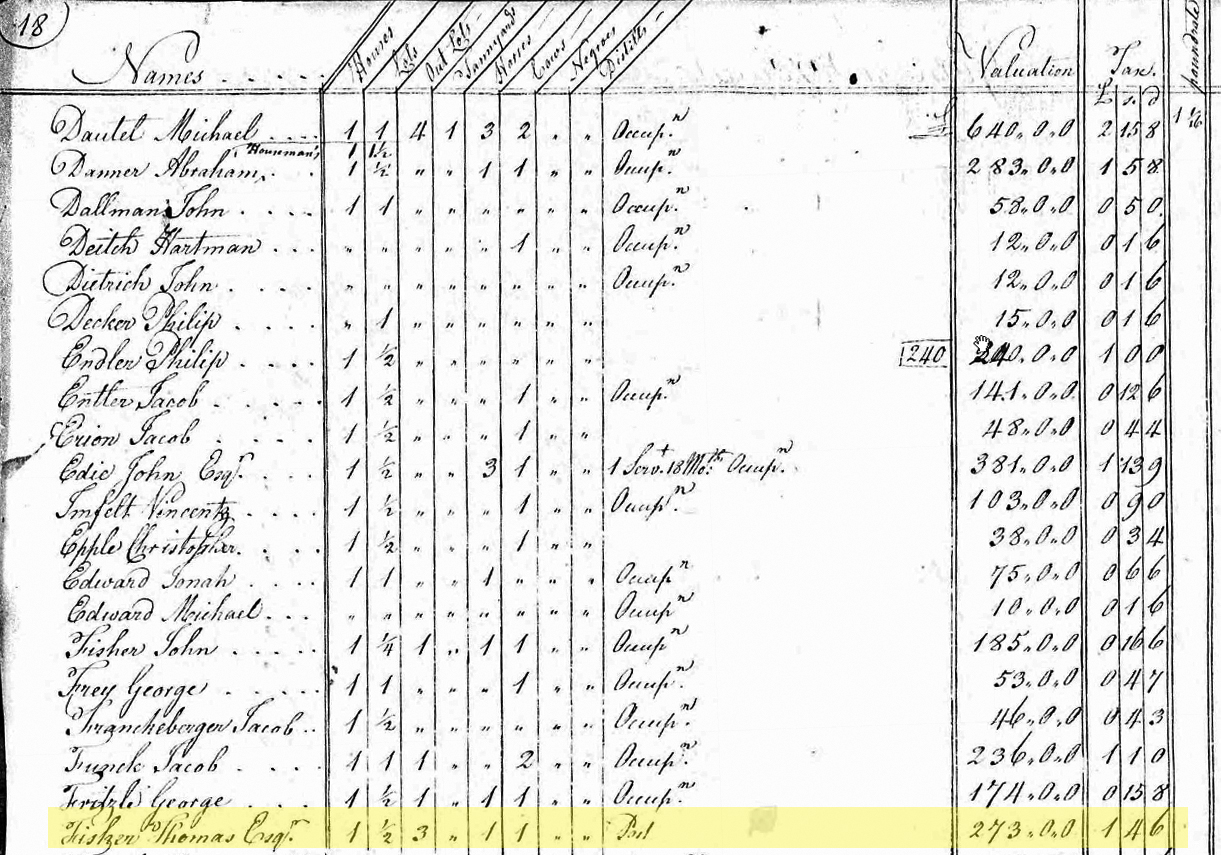 18
Names Houses Lots Out Lots Tannyards Horses Cows Negroes Distills Valuation Tax. poundrate
£ s. d
Dautel Michael 1 1 4 1 3 2 " " Occupn 640,,0,,0 2 15 8
Houseman's 1 1½
Danner Abraham 1 ½ " " 1 1 " " Occupn 283,,0,,0 1 5 8
Dallman John 1 1 " " " " " " Occupn 58,,0,,0 0 5 0
Deitch Hartman " " " " " 1 " " Occupn 12,,0,,0 0 1 6
Dietrich John " " " " " " " " Occupn 12,,0,,0 0 1 6
Decker Philip " 1 " " " " " " 15,,0,,0 0 1 6
Endler Philip 1 ½ " " " " " " 240 240,,0,,0 1 0 0
Entler Jacob 1 ½ " " " 1 " " Occupn 141,,0,,0 0 12 6
Erion Jacob 1 ½ " " " 1 " " 48,,0,,0 0 4 4
Edie John Esqr. 1 ½ " " 3 1 " " 1 Servt. 18 Mo.ths Occupn 381,,0,,0 1 13 9
Imfelt Vincentz 1 ½ " " " 1 " " Occupn 103,,0,,0 0 9 0
Epple Christopher 1 ½ " " " 1 " " 38,,0,,0 0 3 4
Edward Jonah 1 1 " " 1 " " " Occupn 75,,0,,0 0 6 6
Edward Michael " " " " " " " " Occupn 10,,0,,0 0 1 6
Fisher John 1 ¼ 1 " 1 1 " " Occupn 185,,0,,0 0 16 6
Frey George 1 1 " " " 1 " " Occupn 53,,0,,0 0 4 7
Francheberger Jacob 1 ½ " " " " " " Occupn 46,,0,,0 0 4 3
Funck Jacob 1 1 1 " " 2 " " Occupn 236,,0,,0 1 1 0
Fritzle George 1 ½ 1 " 1 1 " " Occupn 174,,0,,0 0 15 8
Fisher Thomas Esqr. 1 ½ 3 " 1 1 " " 273,,0,,0 1 4 6